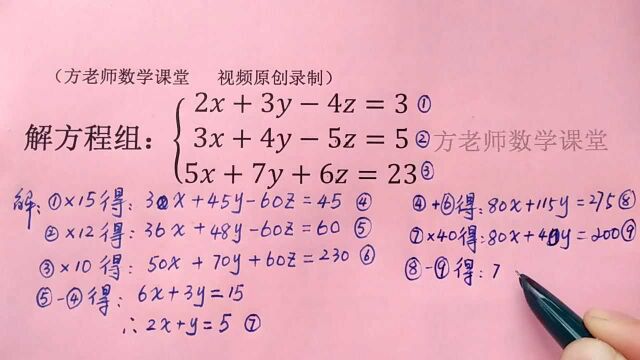 （方老师数学课堂 视频原创录制）
解方程组：
2x+3y−4z=3 ①
3x+4y−5z=5 ②
5x+7y+6z=23 ③
方老师数学课堂
解：①×15得：30x+45y−60z=45 ④
②×12得：36x+48y−60z=60 ⑤
③×10得：50x+70y+60z=230 ⑥
⑤−④得：6x+3y=15
∴2x+y=5 ⑦
④+⑥得：80x+115y=275⑧
⑦×40得：80x+40y=200⑨
⑧−⑨得：7